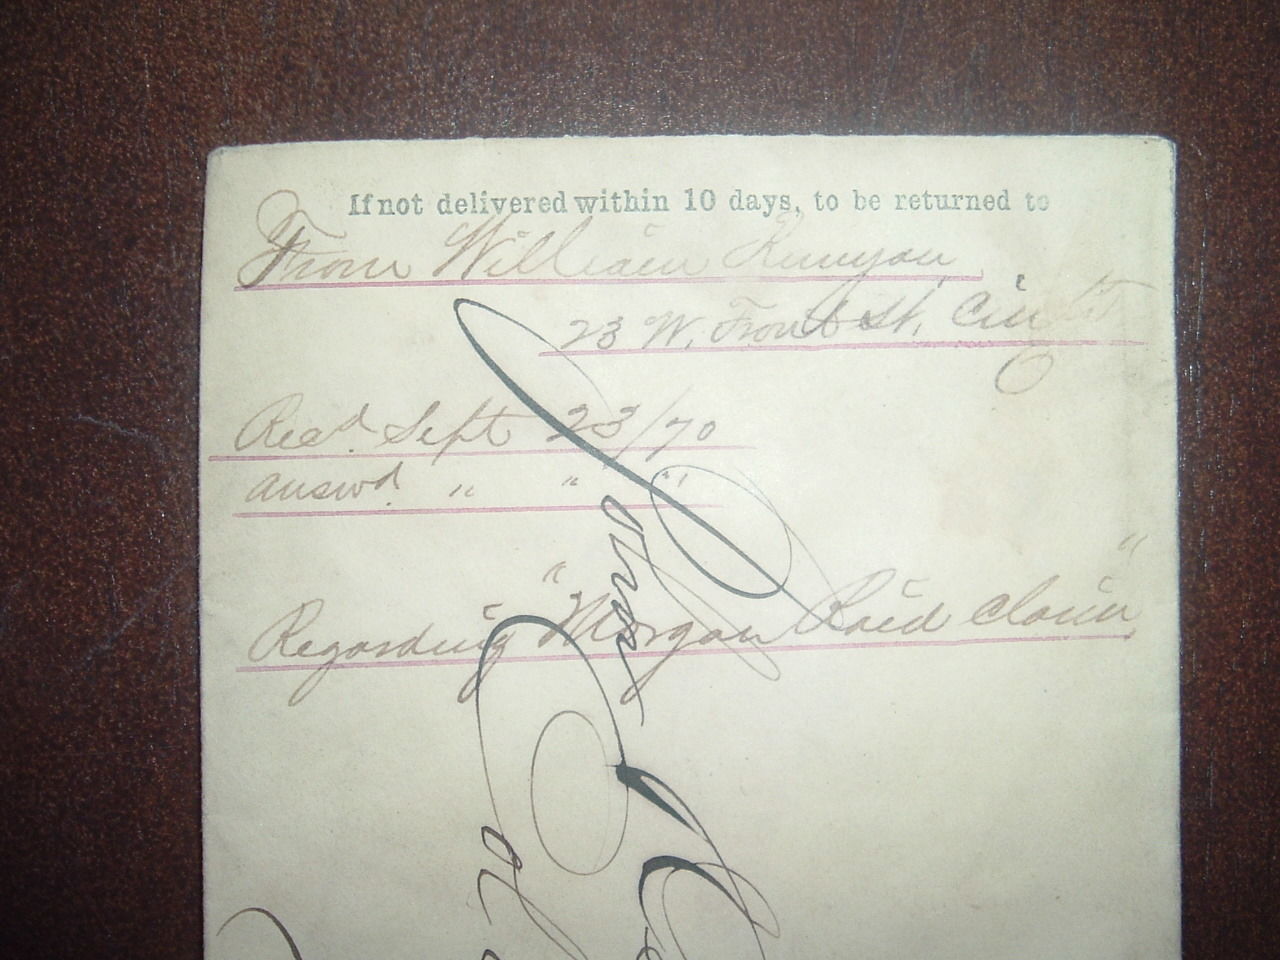 If not delivered within 10 days, to be returned to
From William Runyon
23 W. Front St. Cin
Recd. Sept 23/70
Answd. " " "
Regarding "Morgan Raid Claim"